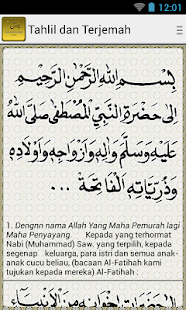 12:01
Tahlil dan Terjemah
بِسْمِ اللهِ الرَّحْمٰنِ الرَّحِيْمِ
إِلَى حَضْرَةِ النَّبِيِّ الْمُصْطَفَى صَلَّى اللهُ
عَلَيْهِ وَسَلَّمَ وَاٰلِهِ وَاَزْوَاجِهِ وَاَوْلَادِهِ
وَذُرِّيَّاتِهِ الْفَاتِحَةَ ...
1. Dengnn nama Allah Yang Maha Pemurah lagi
Maha Penyayang. Kepada yang terhormat
Nabi (Muhammad) Saw. yang terpilih, kepada
segenap keluarga, para istri dan semua anak-
anak cucu beliau, (bacaan Al-Fatihah kami
tujukan kepada mereka) Al-Fatihah :